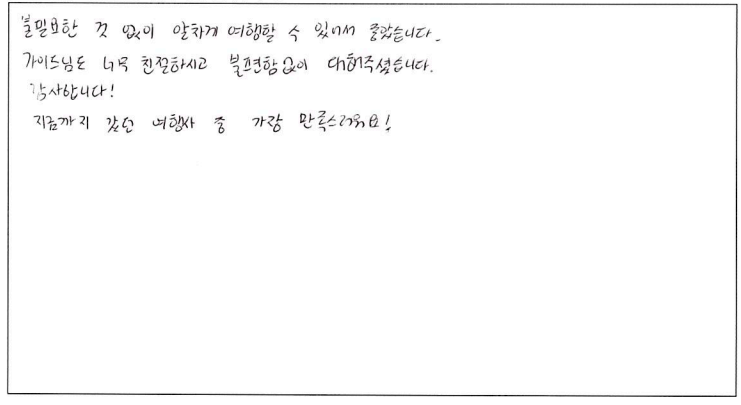 불필요한 것 없이 알차게 여행할 수 있어서 좋았습니다.
가이드님도 너무 친절하시고 불편함없이 대해주셨습니다.
감사합니다!
지금까지 갔던 여행사 중 가장 만족스러워요!